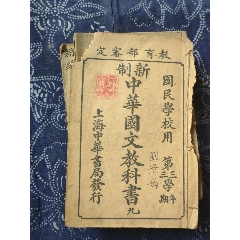 教育部審定
國民學校用
第三學年
第三期
新制
中華國文教科書
九
上海中華書局發行